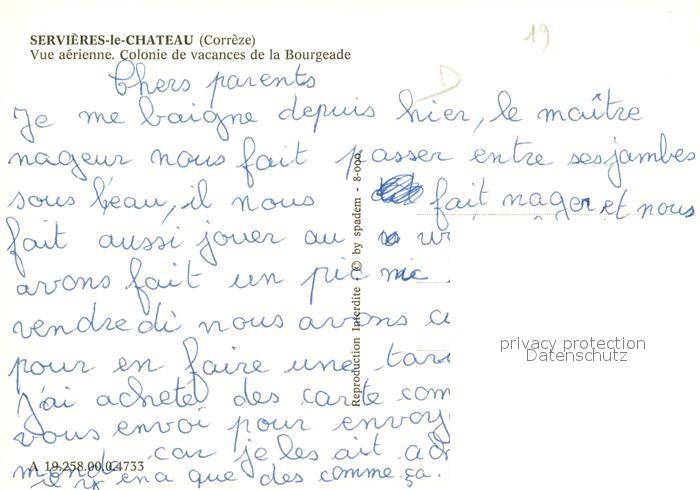 19
SERVIÈRES-le-CHATEAU (Corrèze)
Vue aérienne. Colonie de vacances de la Bourgeade
Chers parents
Je me baigne depuis hier, le maître
nageur nous fait passer entre ses jambes
sous l'eau, il nous fait nager et nous
fait aussi jouer au
avons fait un pic nic
vendredi nous avons
pour en faire une
J'ai acheté des carte com
vous envoi pour envoy
car je les ait ach
il y en a que des comme ça.
A 19.258.00.0.4733
Reproduction Interdite - © by spadem - 8-000
privacy protection
Datenschutz